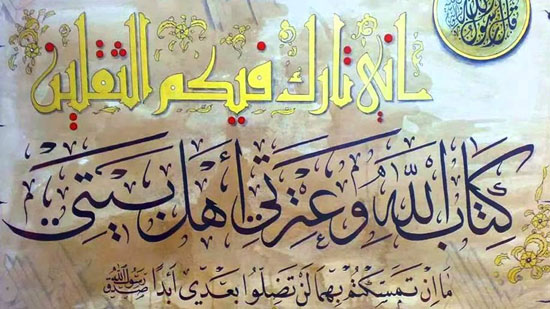 قال رسول الله
إني تارك فيكم الثقلين
كِتَابَ اللهِ وَعِتْرَتِي أَهْلَ بَيْتِي
مَا إِنْ تَمَسَّكْتُمْ بِهِمَا لَنْ تَضِلُّوا بَعْدِي أَبَدًا
صدق رسول الله